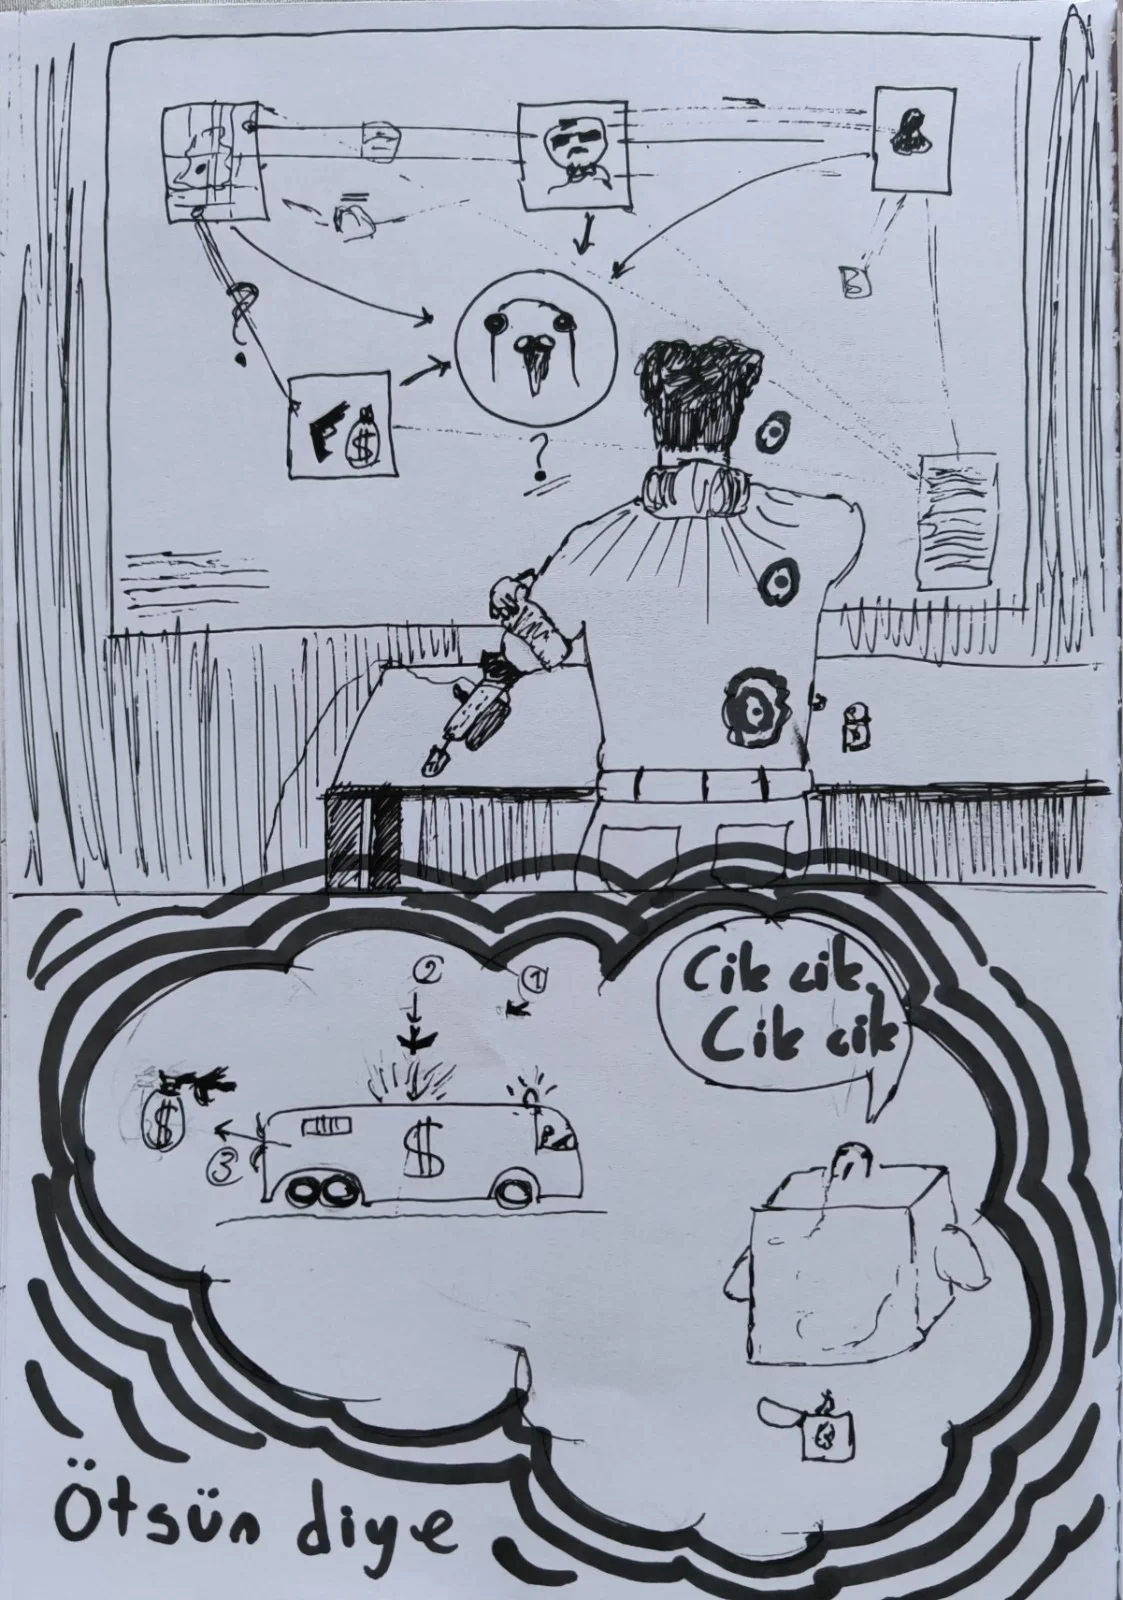 ?
$
?
B
②
①
$
③
$
Cik cik.
Cik cik
Ötsün diye